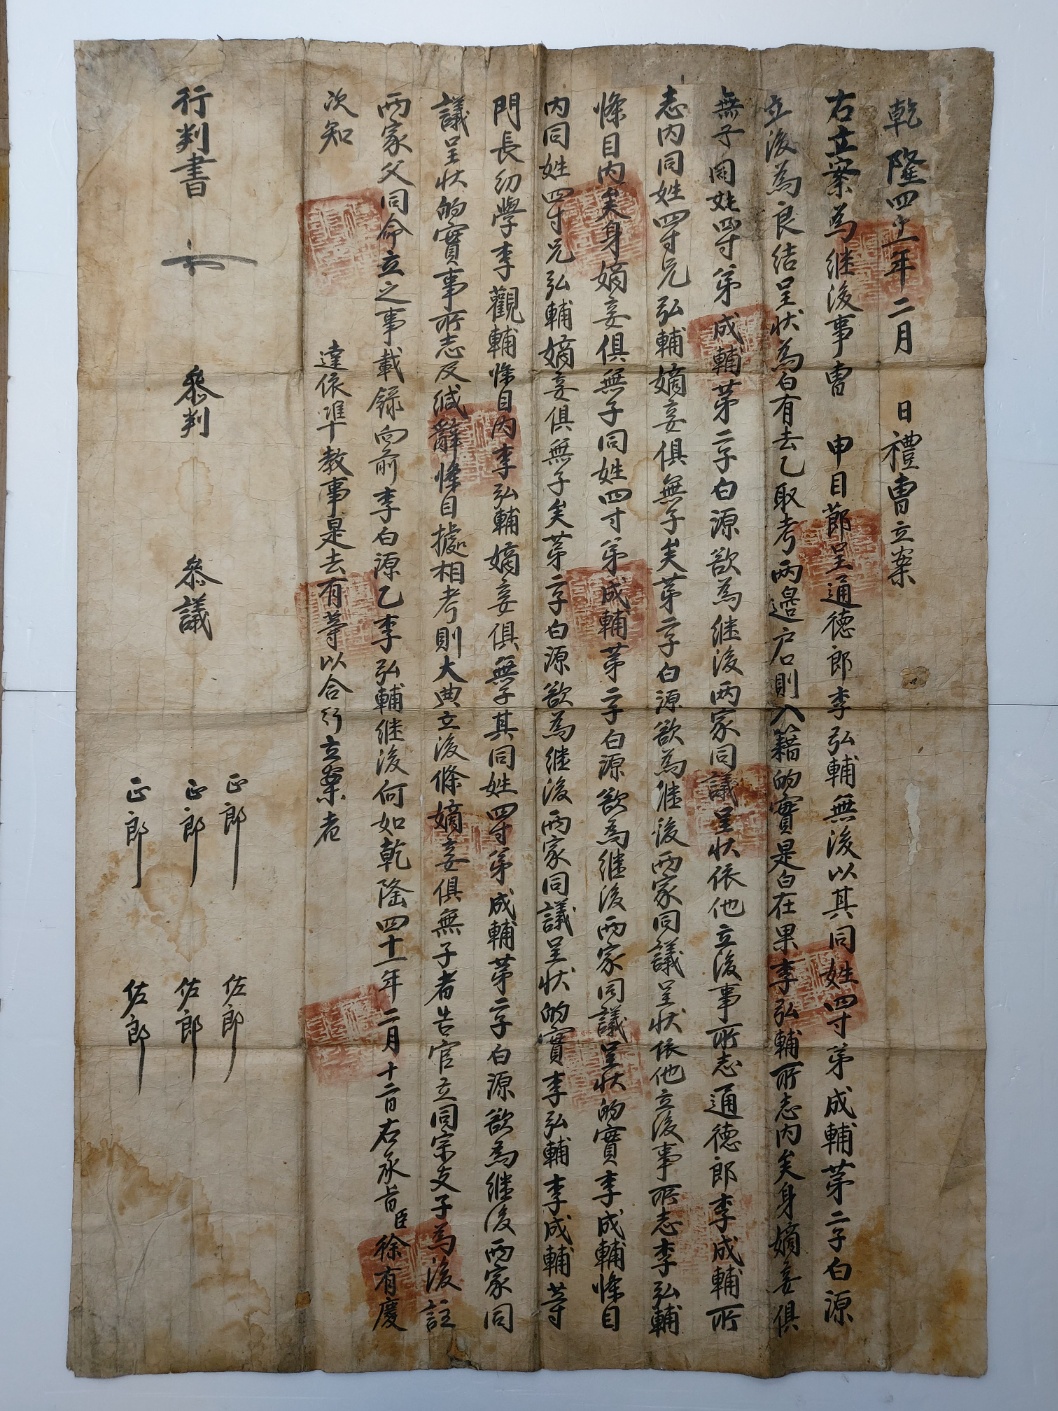 乾隆四十一年二月 日禮曹立案
右立案為継後事曹 申目節呈通德郎李弘輔無後以其同姓四寸弟成輔苐二子白源
立後為良結呈狀為白有去乙取考兩邉戶口則入籍的實是白在果李弘輔所志內矣身嫡妾俱
無子同姓四寸弟成輔苐二子白源欲為継後兩家同議呈狀依他立後事所志通德郎李成輔所
志內同姓四寸兄弘輔嫡妾俱無子矣苐二子白源欲為継後兩家同議呈狀依他立後事所志李弘輔
條目內矣身嫡妾俱無子同姓四寸弟成輔苐二子白源欲為継後兩家同議呈狀的實李成輔條目
內同姓四寸兄弘輔嫡妾俱無子矣苐二子白源欲為継後兩家同議呈狀的實李弘輔李成輔等
門長幼學李觀輔條目內李弘輔嫡妾俱無子其同姓四寸弟成輔苐二子白源欲為継後兩家同
議呈狀的實事所志及緘辭條目據相考則大典立後條嫡妾俱無子者告官立同宗支子為後註
兩家父同命立之事載錄向前李白源乙李弘輔継後何如乾隆四十一年二月十二日右承旨臣徐有慶
次知 達依準教事是去有等以合行立案者
行判書 叅判 叅議
正郎 佐郎
正郎 佐郎
正郎 佐郎